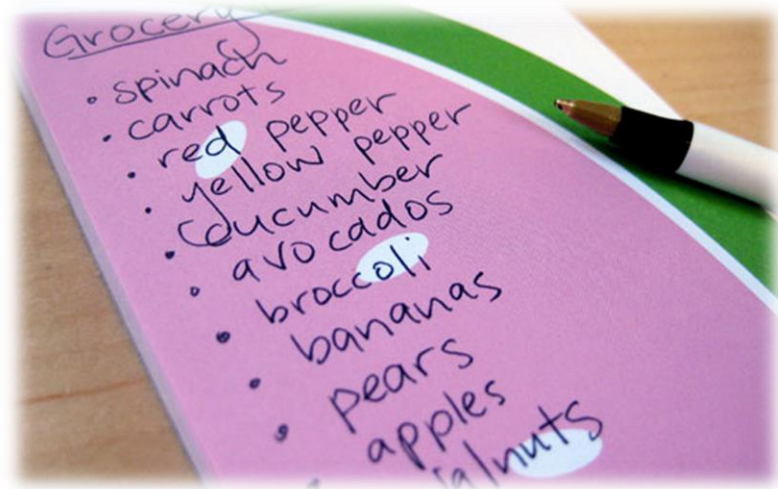 Grocery
• spinach
• carrots
• red pepper
• yellow pepper
• cucumber
• avocados
• broccoli
• bananas
• pears
• apples